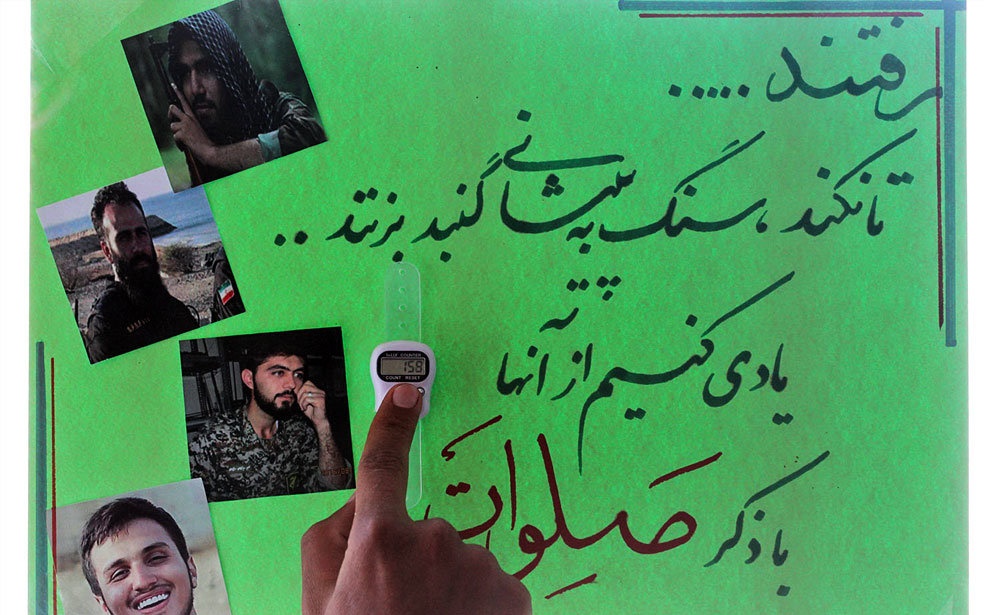 رفتند .....
تا نکند ، سنگ به پیشانی گنبد بزنند ..
یادی کنیم از آنها
با ذکر صلوات
TALLY COUNTER
158
COUNT RESET